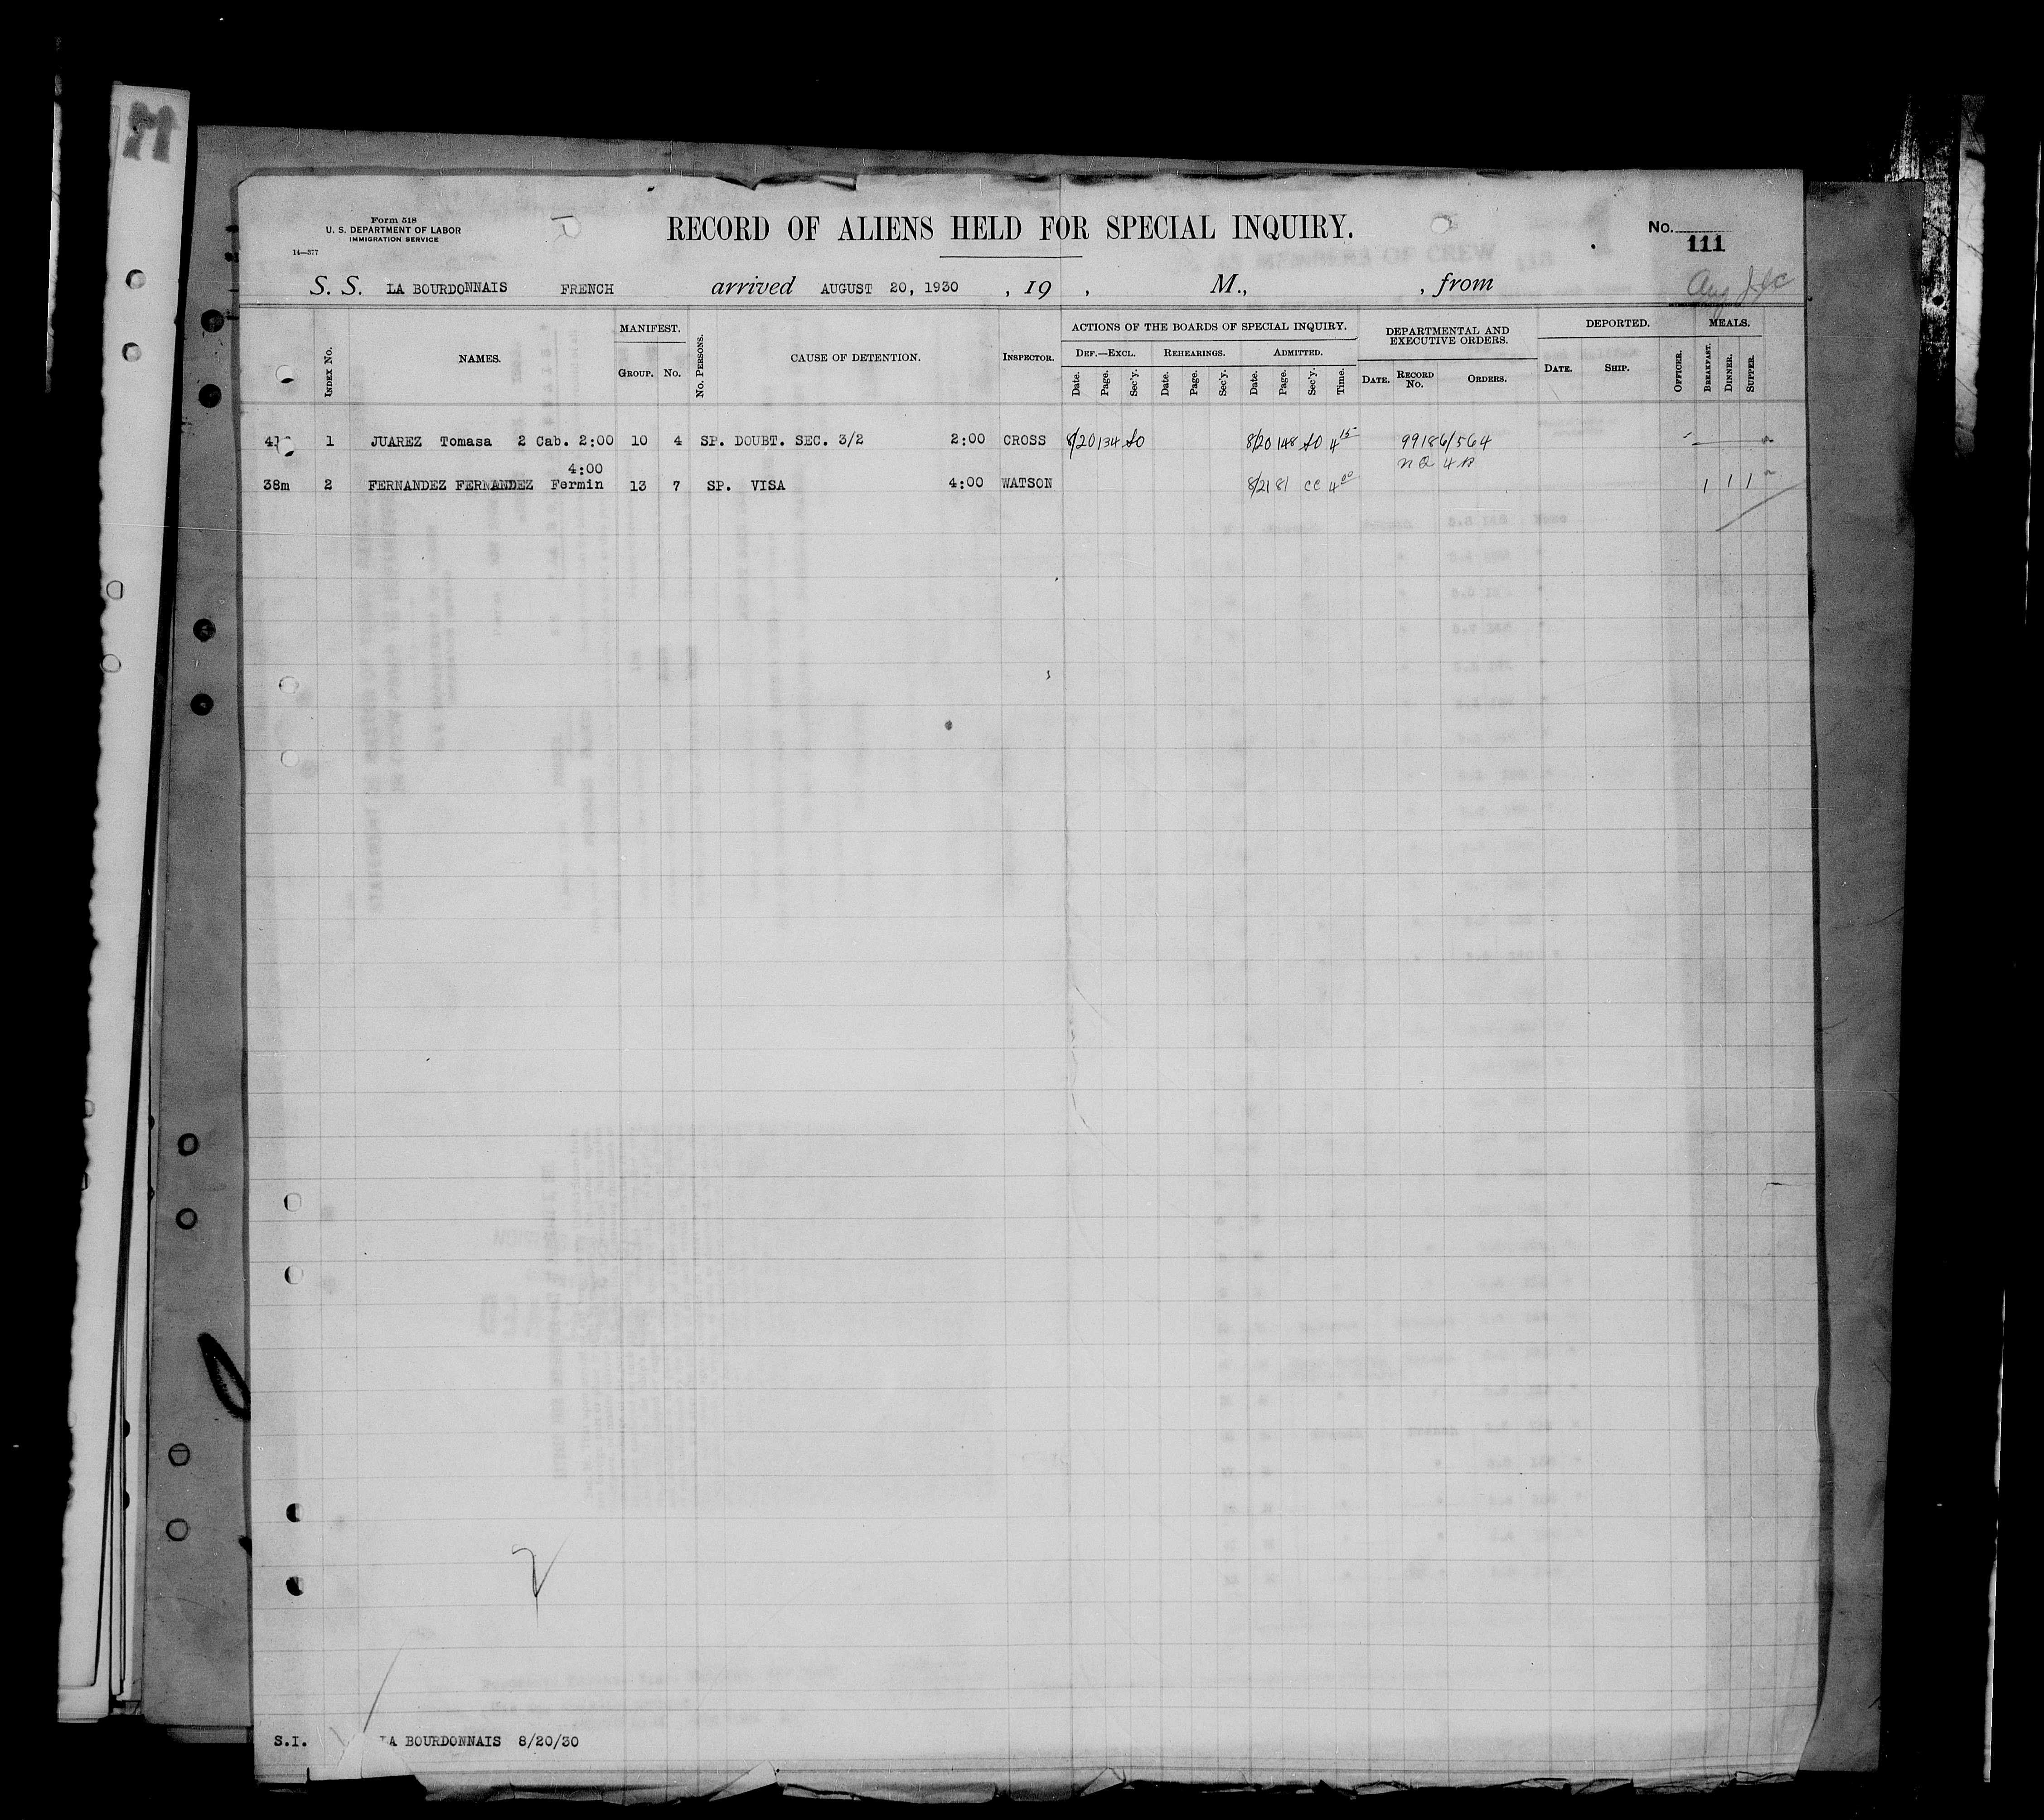 Form 518
U. S. DEPARTMENT OF LABOR
IMMIGRATION SERVICE
14—377
RECORD OF ALIENS HELD FOR SPECIAL INQUIRY.
No. 111
S. S. LA BOURDONNAIS FRENCH arrived AUGUST 20, 1930 , 19 , M., , from
Aug
INDEX No. NAMES. MANIFEST. GROUP. No. No. PERSONS. CAUSE OF DETENTION. INSPECTOR.
ACTIONS OF THE BOARDS OF SPECIAL INQUIRY.
DEF.—EXCL. REHEARINGS. ADMITTED.
Date. Page. Sec'y. Date. Page. Sec'y. Date. Page. Sec'y. Time.
DEPARTMENTAL AND EXECUTIVE ORDERS.
DATE. RECORD No. ORDERS.
DEPORTED.
DATE. SHIP. OFFICER.
MEALS.
BREAKFAST. DINNER. SUPPER.
1 JUAREZ Tomasa 2 Cab. 2:00 10 4 SP. DOUBT. SEC. 3/2 2:00 CROSS 8/20 134 SO 8/20 148 SO 4 15 99186/564
4:00
38m 2 FERNANDEZ FERNANDEZ Fermin 13 7 SP. VISA 4:00 WATSON 8/21 81 CC 4 00 1 1 1
2
S.I. LA BOURDONNAIS 8/20/30